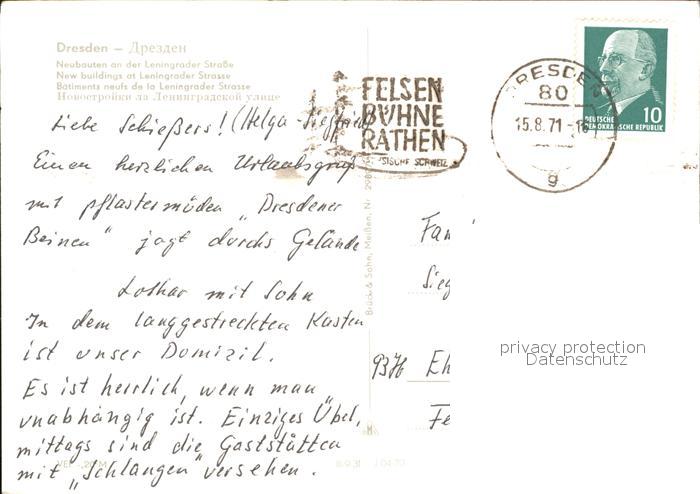 Dresden – Дрезден
Neubauten an der Leningrader Straße
New buildings at Leningrader Strasse
Batiments neufs de la Leningrader Strasse
Новостройки на Ленинградской улице
Liebe Schießers! (Helga - Siegfried)
Einen herzlichen Urlaubsgruß
mit pflastermüden „Dresdener
Beinen" jagt durchs Gelände
Lothar mit Sohn
In dem langgestreckten Kasten
ist unser Domizil.
Es ist herrlich, wenn man
unabhängig ist. Einziges Übel,
mittags sind die Gaststätten
mit „Schlangen" versehen.
Brück & Sohn, Meißen, Nr.
FELSEN
BÜHNE
RATHEN
SÄCHSISCHE SCHWEIZ
DRESDEN
80
15.8.71
g
10
DEUTSCHE
DEMOKRATISCHE REPUBLIK
Fam
Sieg
9376 Eh
Fe
privacy protection
Datenschutz